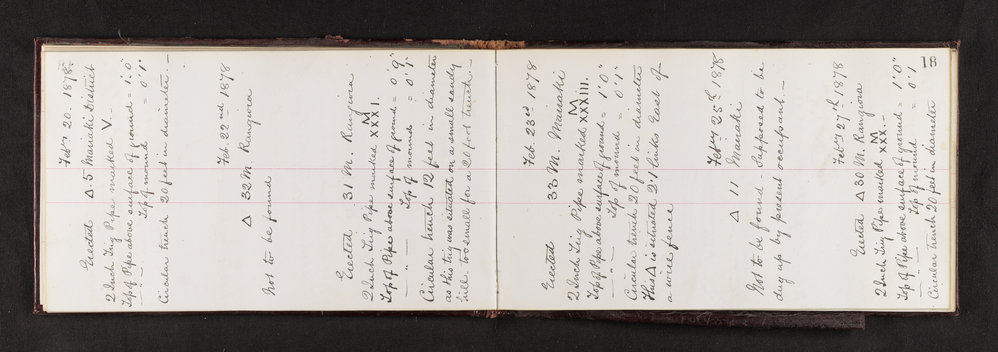 Feby 20. 1878
Erected Δ. 5 Manaki District
2 Inch Trig Pipe marked V. –
Top of Pipe above surface of ground = 1'.0"
— " — Top of mound = 0'1"
Circular trench 20 feet in diameter —
Feb. 22nd 1878
Δ 32 M Rangiora
Not to be found
Erected 31 M. Rangiora
2 Inch Trig Pipe marked M XXXI.
Top of Pipe above surface of ground = 0'.9"
— " — Top of mound = 0'.1"
Circular trench 12 feet in diameter
as this trig was situated on a small sandy
hill. too small for a 20 foot trench. —
Feb. 23rd 1878
Erected 33 M. Manaki
2 Inch Trig Pipe marked M XXXIII.
Top of Pipe above surface of ground = 1'.0"
— " — Top of mound = 0'1"
Circular trench 20 feet in diameter
This Δ is situated 2.1 links East of
a wire fence
Feby 25th 1878
Δ 11 Manaki
Not to be found – Supposed to be
dug up by present occupant. —
18
Feby 27th 1878
Erected Δ 30 M. Rangiora
2 Inch Trig Pipe marked M XXX. –
Top of Pipe above surface of ground = 1'.0"
— " — Top of mound = 0'.1
Circular trench 20 feet in diameter